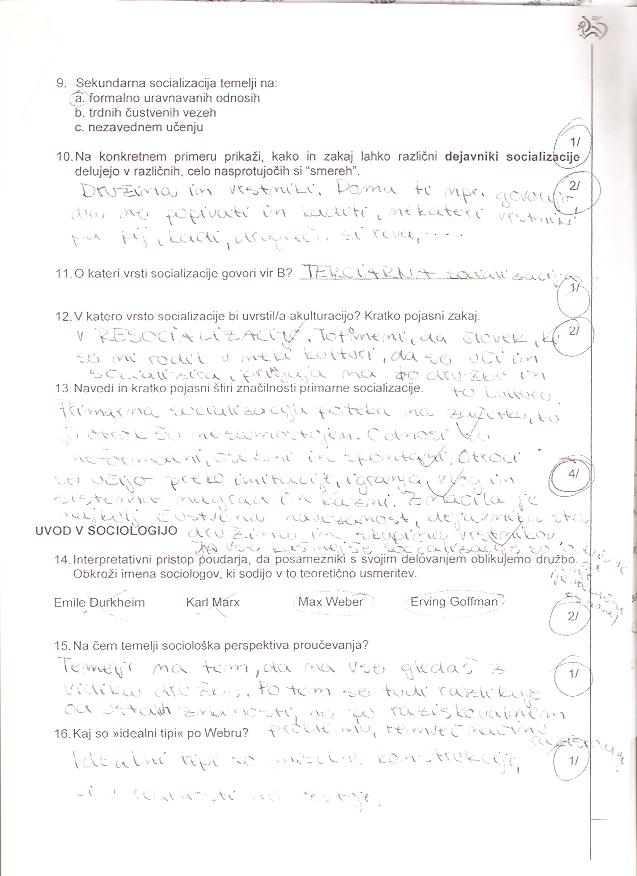 9. Sekundarna socializacija temelji na:
a. formalno uravnavanih odnosih
b. trdnih čustvenih vezeh
c. nezavednem učenju
1/
10. Na konkretnem primeru prikaži, kako in zakaj lahko različni dejavniki socializacije
delujejo v različnih, celo nasprotujočih si "smereh".
2/
Družina in vrstniki. Doma ti npr. govorijo
da ne popivati in kaditi, nekateri vrstniki
pa pij, kadi, drugači si reva, ....
11. O kateri vrsti socializacije govori vir B? TERCIARNA socializacija
1/
12. V katero vrsto socializacije bi uvrstil/a akulturacijo? Kratko pojasni zakaj.
2/
V RESOCIALIZACIJO. To pomeni, da človek, ki
se ni rodil v neki kulturi, da se uči in
socializira, na to družbo in
to kulturo.
13. Navedi in kratko pojasni štiri značilnosti primarne socializacije.
Primarna socializacija poteka na začetku, ko
je otrok še nesamostojen. Odnosi so
neformalni, osebni in spontani. Otroci
se učijo preko imitacije, igranja vlog in
sistema nagrad in kazni. Značilna je
4/
najbolj čustvena navezanost, dejavnika sta
družina in skupina vrstnikov.
UVOD V SOCIOLOGIJO
14. Interpretativni pristop poudarja, da posamezniki s svojim delovanjem oblikujemo družbo.
Obkroži imena sociologov, ki sodijo v to teoretično usmeritev.
Emile Durkheim Karl Marx Max Weber Erving Goffman
2/
15. Na čem temelji sociološka perspektiva proučevanja?
Temelji na tem, da na vse gledaš z
vidika družbe. Po tem se tudi razlikuje
1/
od ostalih znanosti, ne po raziskovalnem
problemu, temveč načinu
raziskovanja
16. Kaj so »idealni tipi« po Webru?
Idealni tipi so miselne konstrukcije,
1/
ki v realnosti ne